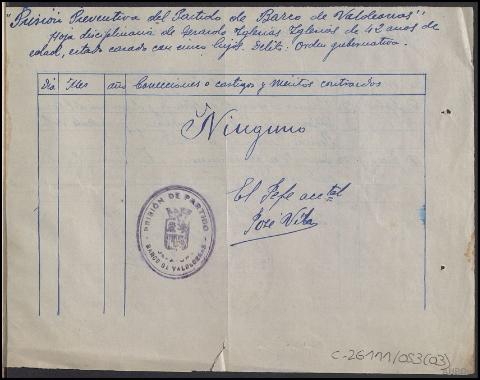 "Prisión Preventiva del Partido de Barco de Valdeorras"
Hoja disciplinaria de Gerardo Yglesias Yglesias de 42 anos de
edad, estado casado con cinco hijos. Delito: Orden gubernativa.
Dia Mes año Correcciones o castigos y méritos contraidos
Ninguno
El Jefe acctal
José Vila
PRISIÓN DE PARTIDO
BARCO DE VALDEORRAS
C-26111/053(03)